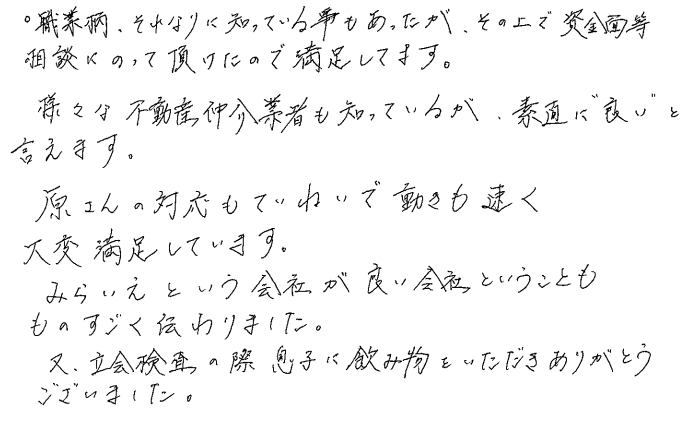 ○職業柄、それなりに知っている事もあったが、その上で資金面等
相談にのって頂けたので満足してます。
様々な不動産仲介業者も知っているが、素直に"良い"と
言えます。
原さんの対応もていねいで動きも速く
大変満足しています。
みらいえという会社が良い会社ということも
ものすごく伝わりました。
又、立会検査の際息子に飲み物をいただきありがとう
ございました。